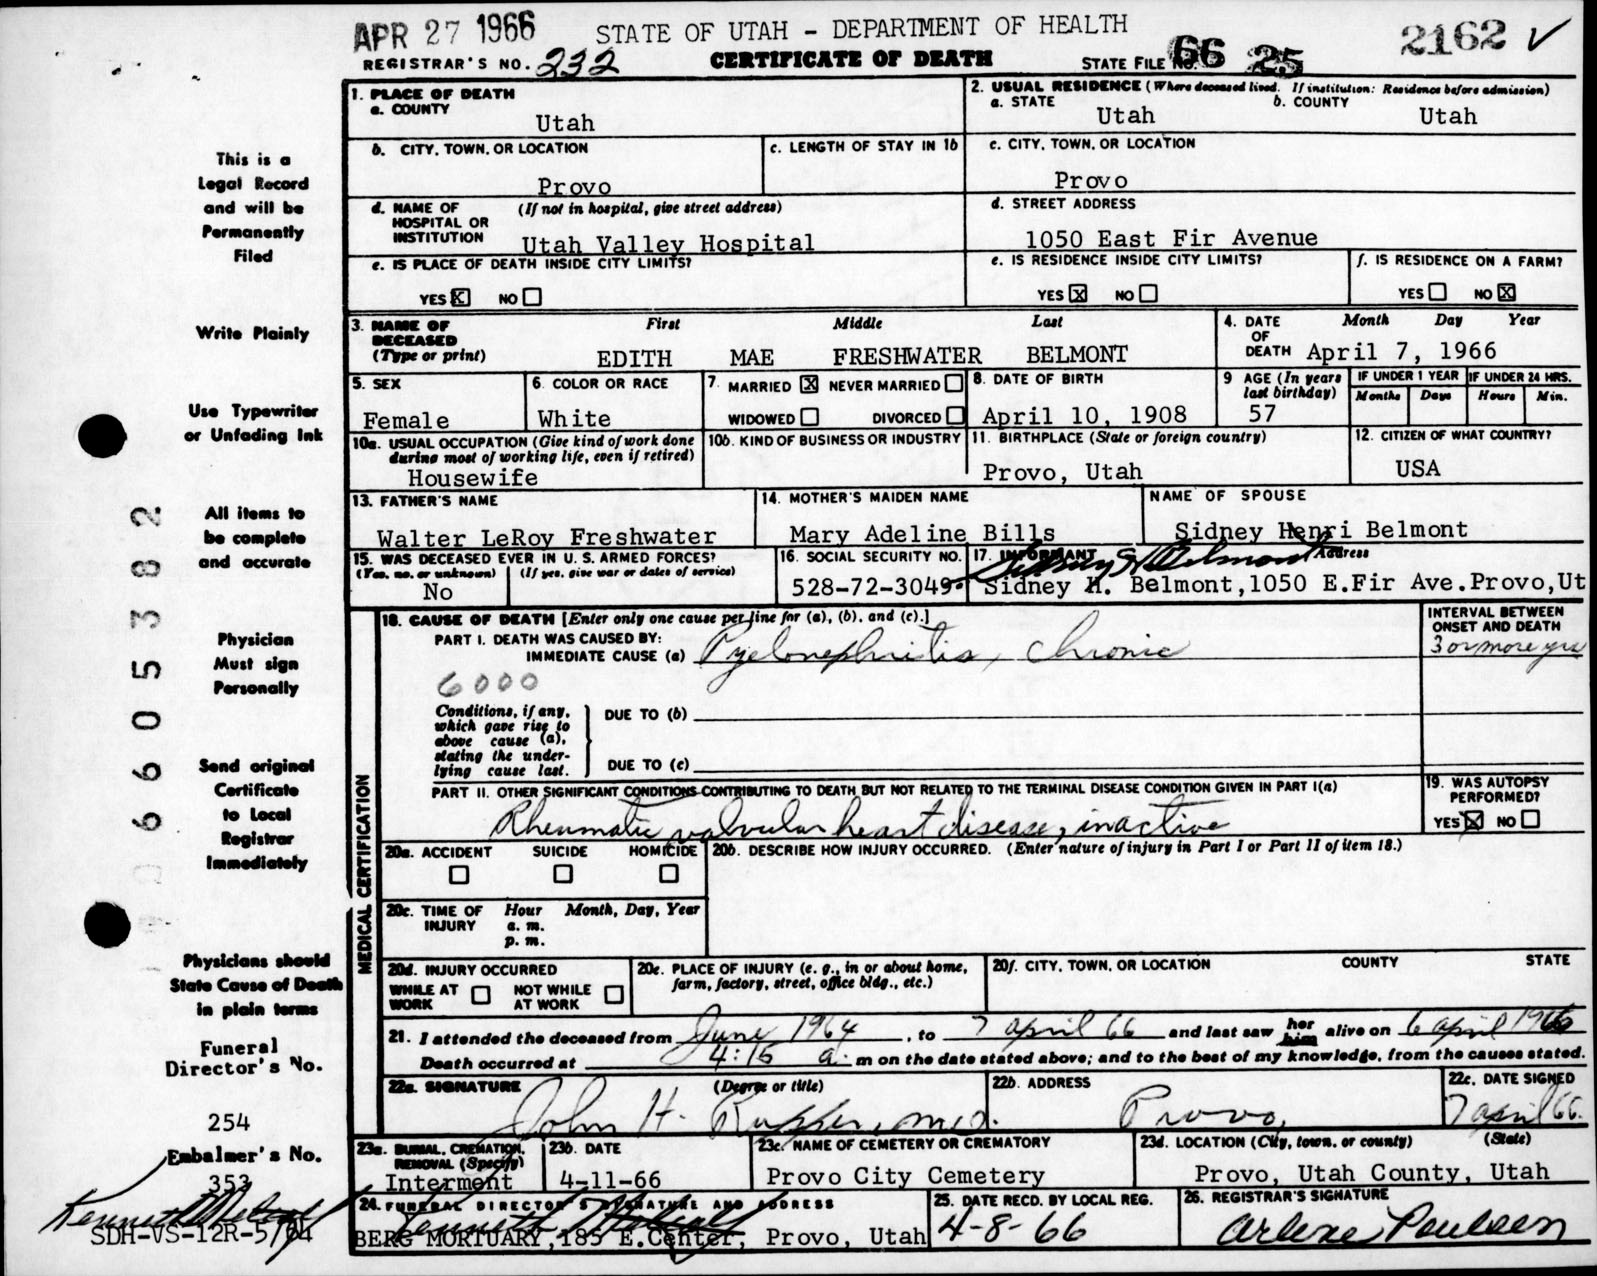 APR 27 1966 STATE OF UTAH - DEPARTMENT OF HEALTH 2162 ✓
REGISTRAR'S NO. 232 CERTIFICATE OF DEATH STATE FILE NO. 66 25
1. PLACE OF DEATH
a. COUNTY
Utah
2. USUAL RESIDENCE (Where deceased lived. If institution: Residence before admission)
a. STATE b. COUNTY
Utah Utah
b. CITY, TOWN, OR LOCATION
Provo
c. LENGTH OF STAY IN 1b
c. CITY, TOWN, OR LOCATION
Provo
d. NAME OF HOSPITAL OR INSTITUTION (If not in hospital, give street address)
Utah Valley Hospital
d. STREET ADDRESS
1050 East Fir Avenue
e. IS PLACE OF DEATH INSIDE CITY LIMITS?
YES X NO
e. IS RESIDENCE INSIDE CITY LIMITS?
YES X NO
f. IS RESIDENCE ON A FARM?
YES NO X
3. NAME OF DECEASED (Type or print) First Middle Last
EDITH MAE FRESHWATER BELMONT
4. DATE OF DEATH Month Day Year
April 7, 1966
5. SEX
Female
6. COLOR OR RACE
White
7. MARRIED X NEVER MARRIED
WIDOWED DIVORCED
8. DATE OF BIRTH
April 10, 1908
9 AGE (In years last birthday)
57
IF UNDER 1 YEAR IF UNDER 24 HRS.
Months Days Hours Min.
10a. USUAL OCCUPATION (Give kind of work done during most of working life, even if retired)
Housewife
10b. KIND OF BUSINESS OR INDUSTRY
11. BIRTHPLACE (State or foreign country)
Provo, Utah
12. CITIZEN OF WHAT COUNTRY?
USA
13. FATHER'S NAME
Walter LeRoy Freshwater
14. MOTHER'S MAIDEN NAME
Mary Adeline Bills
NAME OF SPOUSE
Sidney Henri Belmont
15. WAS DECEASED EVER IN U. S. ARMED FORCES?
(Yes, no, or unknown) (If yes, give war or dates of service)
No
16. SOCIAL SECURITY NO.
528-72-3049
17. INFORMANT Address
Sidney H Belmont
Sidney H. Belmont, 1050 E.Fir Ave.Provo,Ut
18. CAUSE OF DEATH [Enter only one cause per line for (a), (b), and (c).]
INTERVAL BETWEEN ONSET AND DEATH
PART I. DEATH WAS CAUSED BY:
IMMEDIATE CAUSE (a) Pyelonephritis, Chronic 3 or more yrs
6000
Conditions, if any, which gave rise to above cause (a), stating the underlying cause last.
DUE TO (b)
DUE TO (c)
PART II. OTHER SIGNIFICANT CONDITIONS CONTRIBUTING TO DEATH BUT NOT RELATED TO THE TERMINAL DISEASE CONDITION GIVEN IN PART I(a)
Rheumatic valvular heart disease, inactive
19. WAS AUTOPSY PERFORMED?
YES X NO
20a. ACCIDENT SUICIDE HOMICIDE
20b. DESCRIBE HOW INJURY OCCURRED. (Enter nature of injury in Part I or Part II of item 18.)
20c. TIME OF INJURY Hour Month, Day, Year
a. m.
p. m.
20d. INJURY OCCURRED
WHILE AT WORK NOT WHILE AT WORK
20e. PLACE OF INJURY (e. g., in or about home, farm, factory, street, office bldg., etc.)
20f. CITY, TOWN, OR LOCATION COUNTY STATE
21. I attended the deceased from June 1964, to 7 april 66 and last saw her him alive on 6 april 1966
Death occurred at 4:15 a. m on the date stated above; and to the best of my knowledge, from the causes stated.
22a. SIGNATURE (Degree or title)
John H. M.D.
22b. ADDRESS
Provo,
22c. DATE SIGNED
7 april 66
23a. BURIAL, CREMATION, REMOVAL (Specify)
Interment
23b. DATE
4-11-66
23c. NAME OF CEMETERY OR CREMATORY
Provo City Cemetery
23d. LOCATION (City, town, or county) (State)
Provo, Utah County, Utah
24. FUNERAL DIRECTOR'S SIGNATURE AND ADDRESS
Kenneth
BERG MORTUARY, 185 E.Center, Provo, Utah
25. DATE RECD. BY LOCAL REG.
4-8-66
26. REGISTRAR'S SIGNATURE
Arlene Poulsen
This is a
Legal Record
and will be
Permanently
Filed
Write Plainly
Use Typewriter
or Unfading Ink
All items to
be complete
and accurate
Physician
Must sign
Personally
Send original
Certificate
to Local
Registrar
Immediately
Physicians should
State Cause of Death
in plain terms
Funeral
Director's No.
254
Embalmer's No.
353
Kenneth
SDH-VS-12R-5/64
MEDICAL CERTIFICATION
6605382